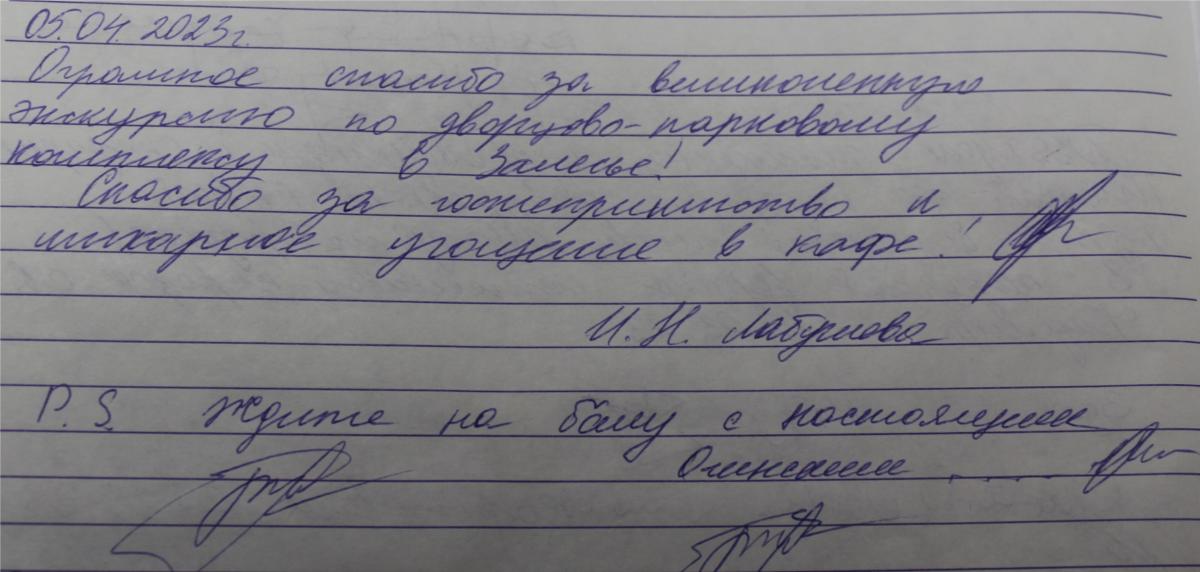 05.04.2023г.
Огромное спасибо за великолепную
экскурсию по дворцово-парковому
комплексу в Залесье!
Спасибо за гостеприимство и
шикарное угощение в кафе!
И.Н.
P.S. Ждите на балу с настоящим
Огинским ....